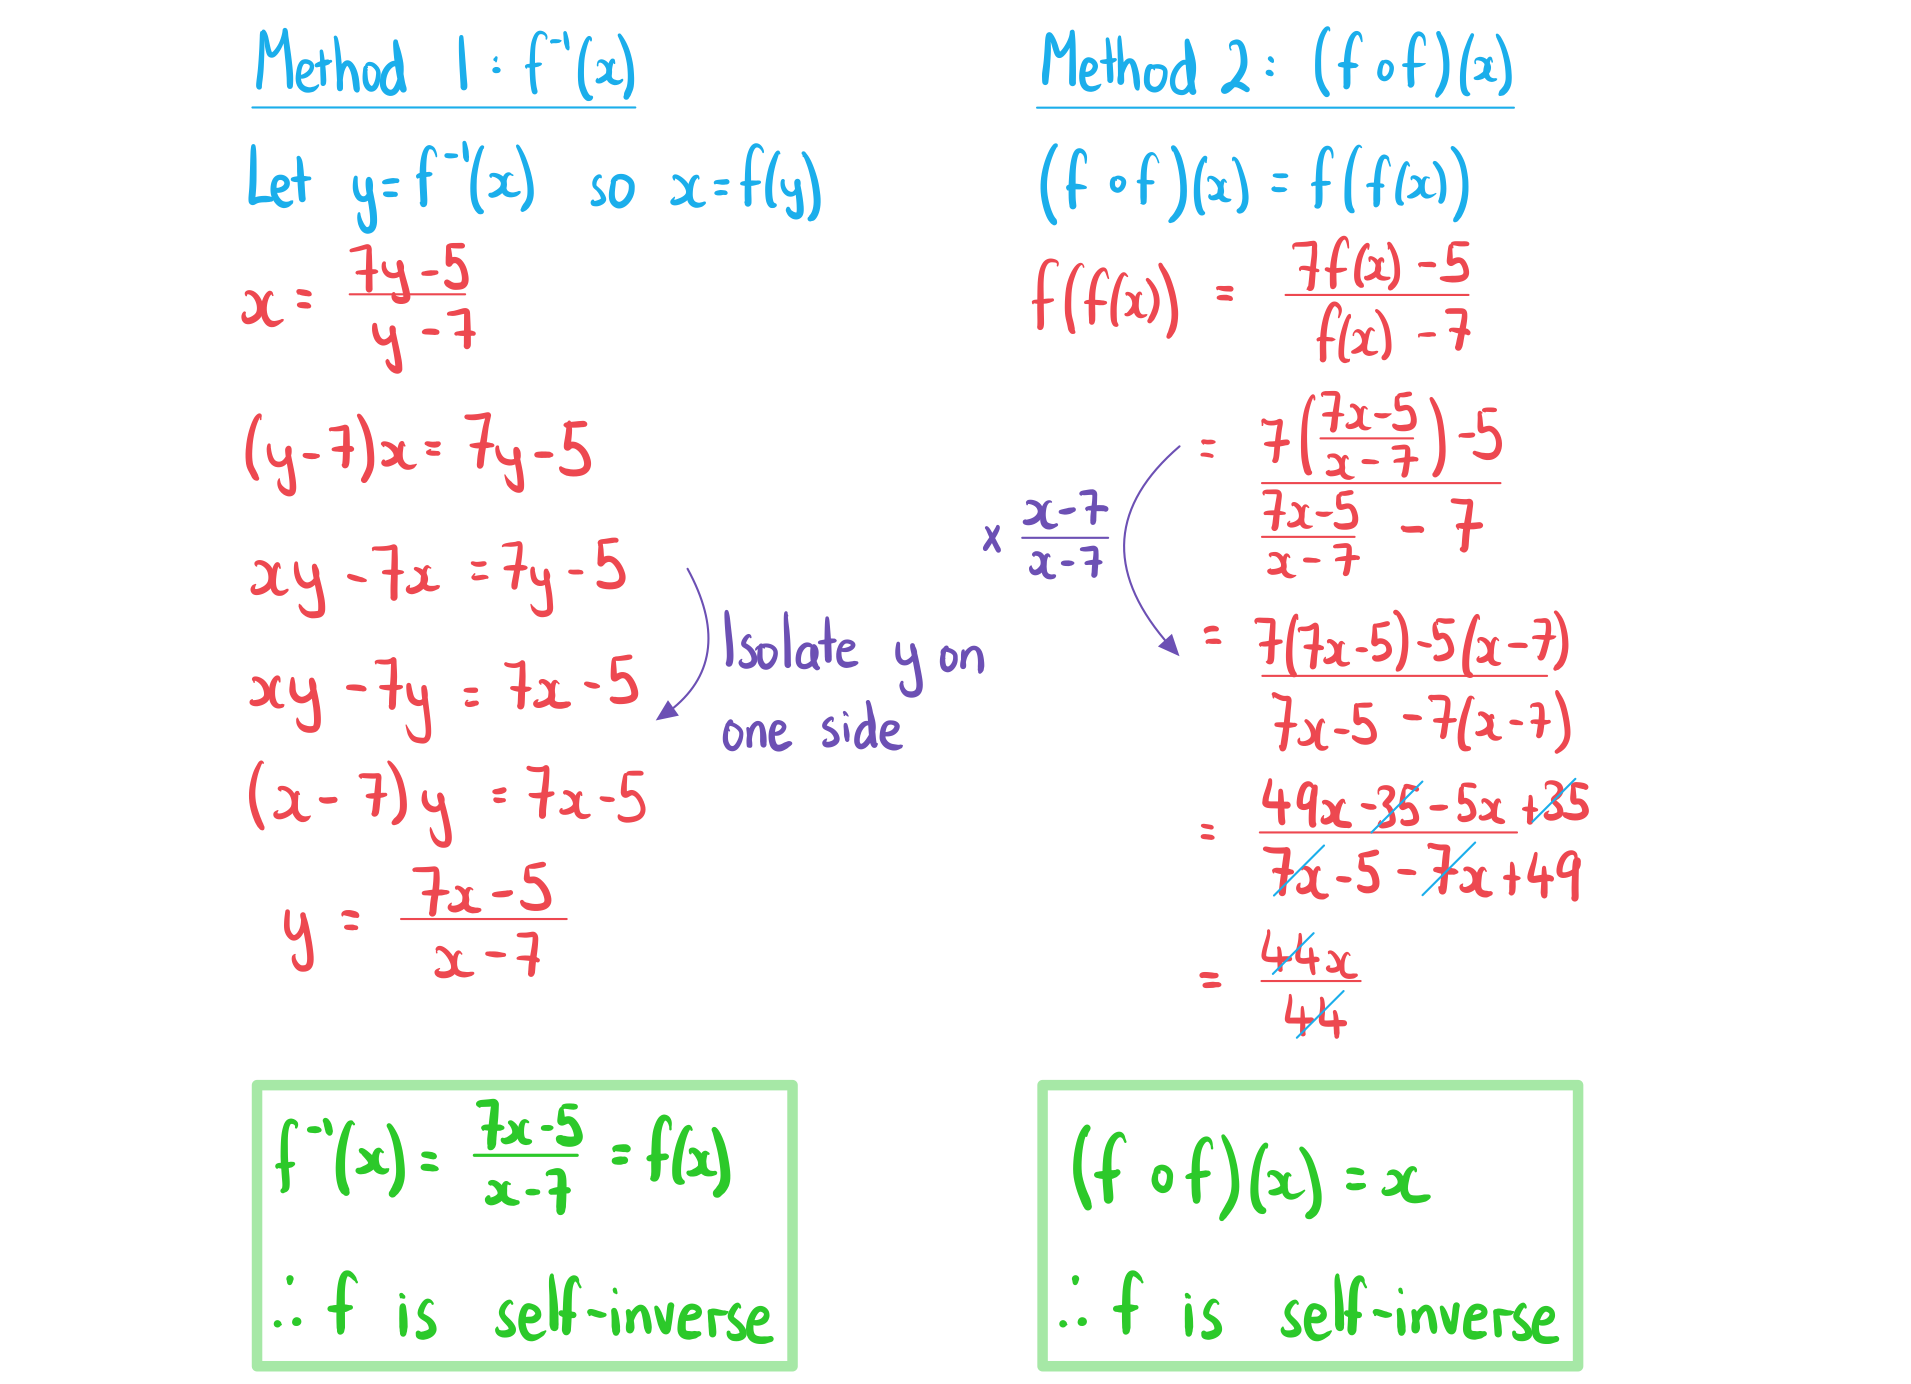 Method 1: f⁻¹(x)
Let y = f⁻¹(x) so x = f(y)
x = (7y - 5)/(y - 7)
(y - 7)x = 7y - 5
xy - 7x = 7y - 5
Isolate y on
one side
xy - 7y = 7x - 5
(x - 7)y = 7x - 5
y = (7x - 5)/(x - 7)
f⁻¹(x) = (7x - 5)/(x - 7) = f(x)
∴ f is self-inverse
Method 2: (f o f)(x)
(f o f)(x) = f(f(x))
f(f(x)) = (7f(x) - 5)/(f(x) - 7)
= (7((7x - 5)/(x - 7)) - 5)/((7x - 5)/(x - 7) - 7)
× (x - 7)/(x - 7)
= (7(7x - 5) - 5(x - 7))/(7x - 5 - 7(x - 7))
= (49x - 35 - 5x + 35)/(7x - 5 - 7x + 49)
= 44x/44
(f o f)(x) = x
∴ f is self-inverse